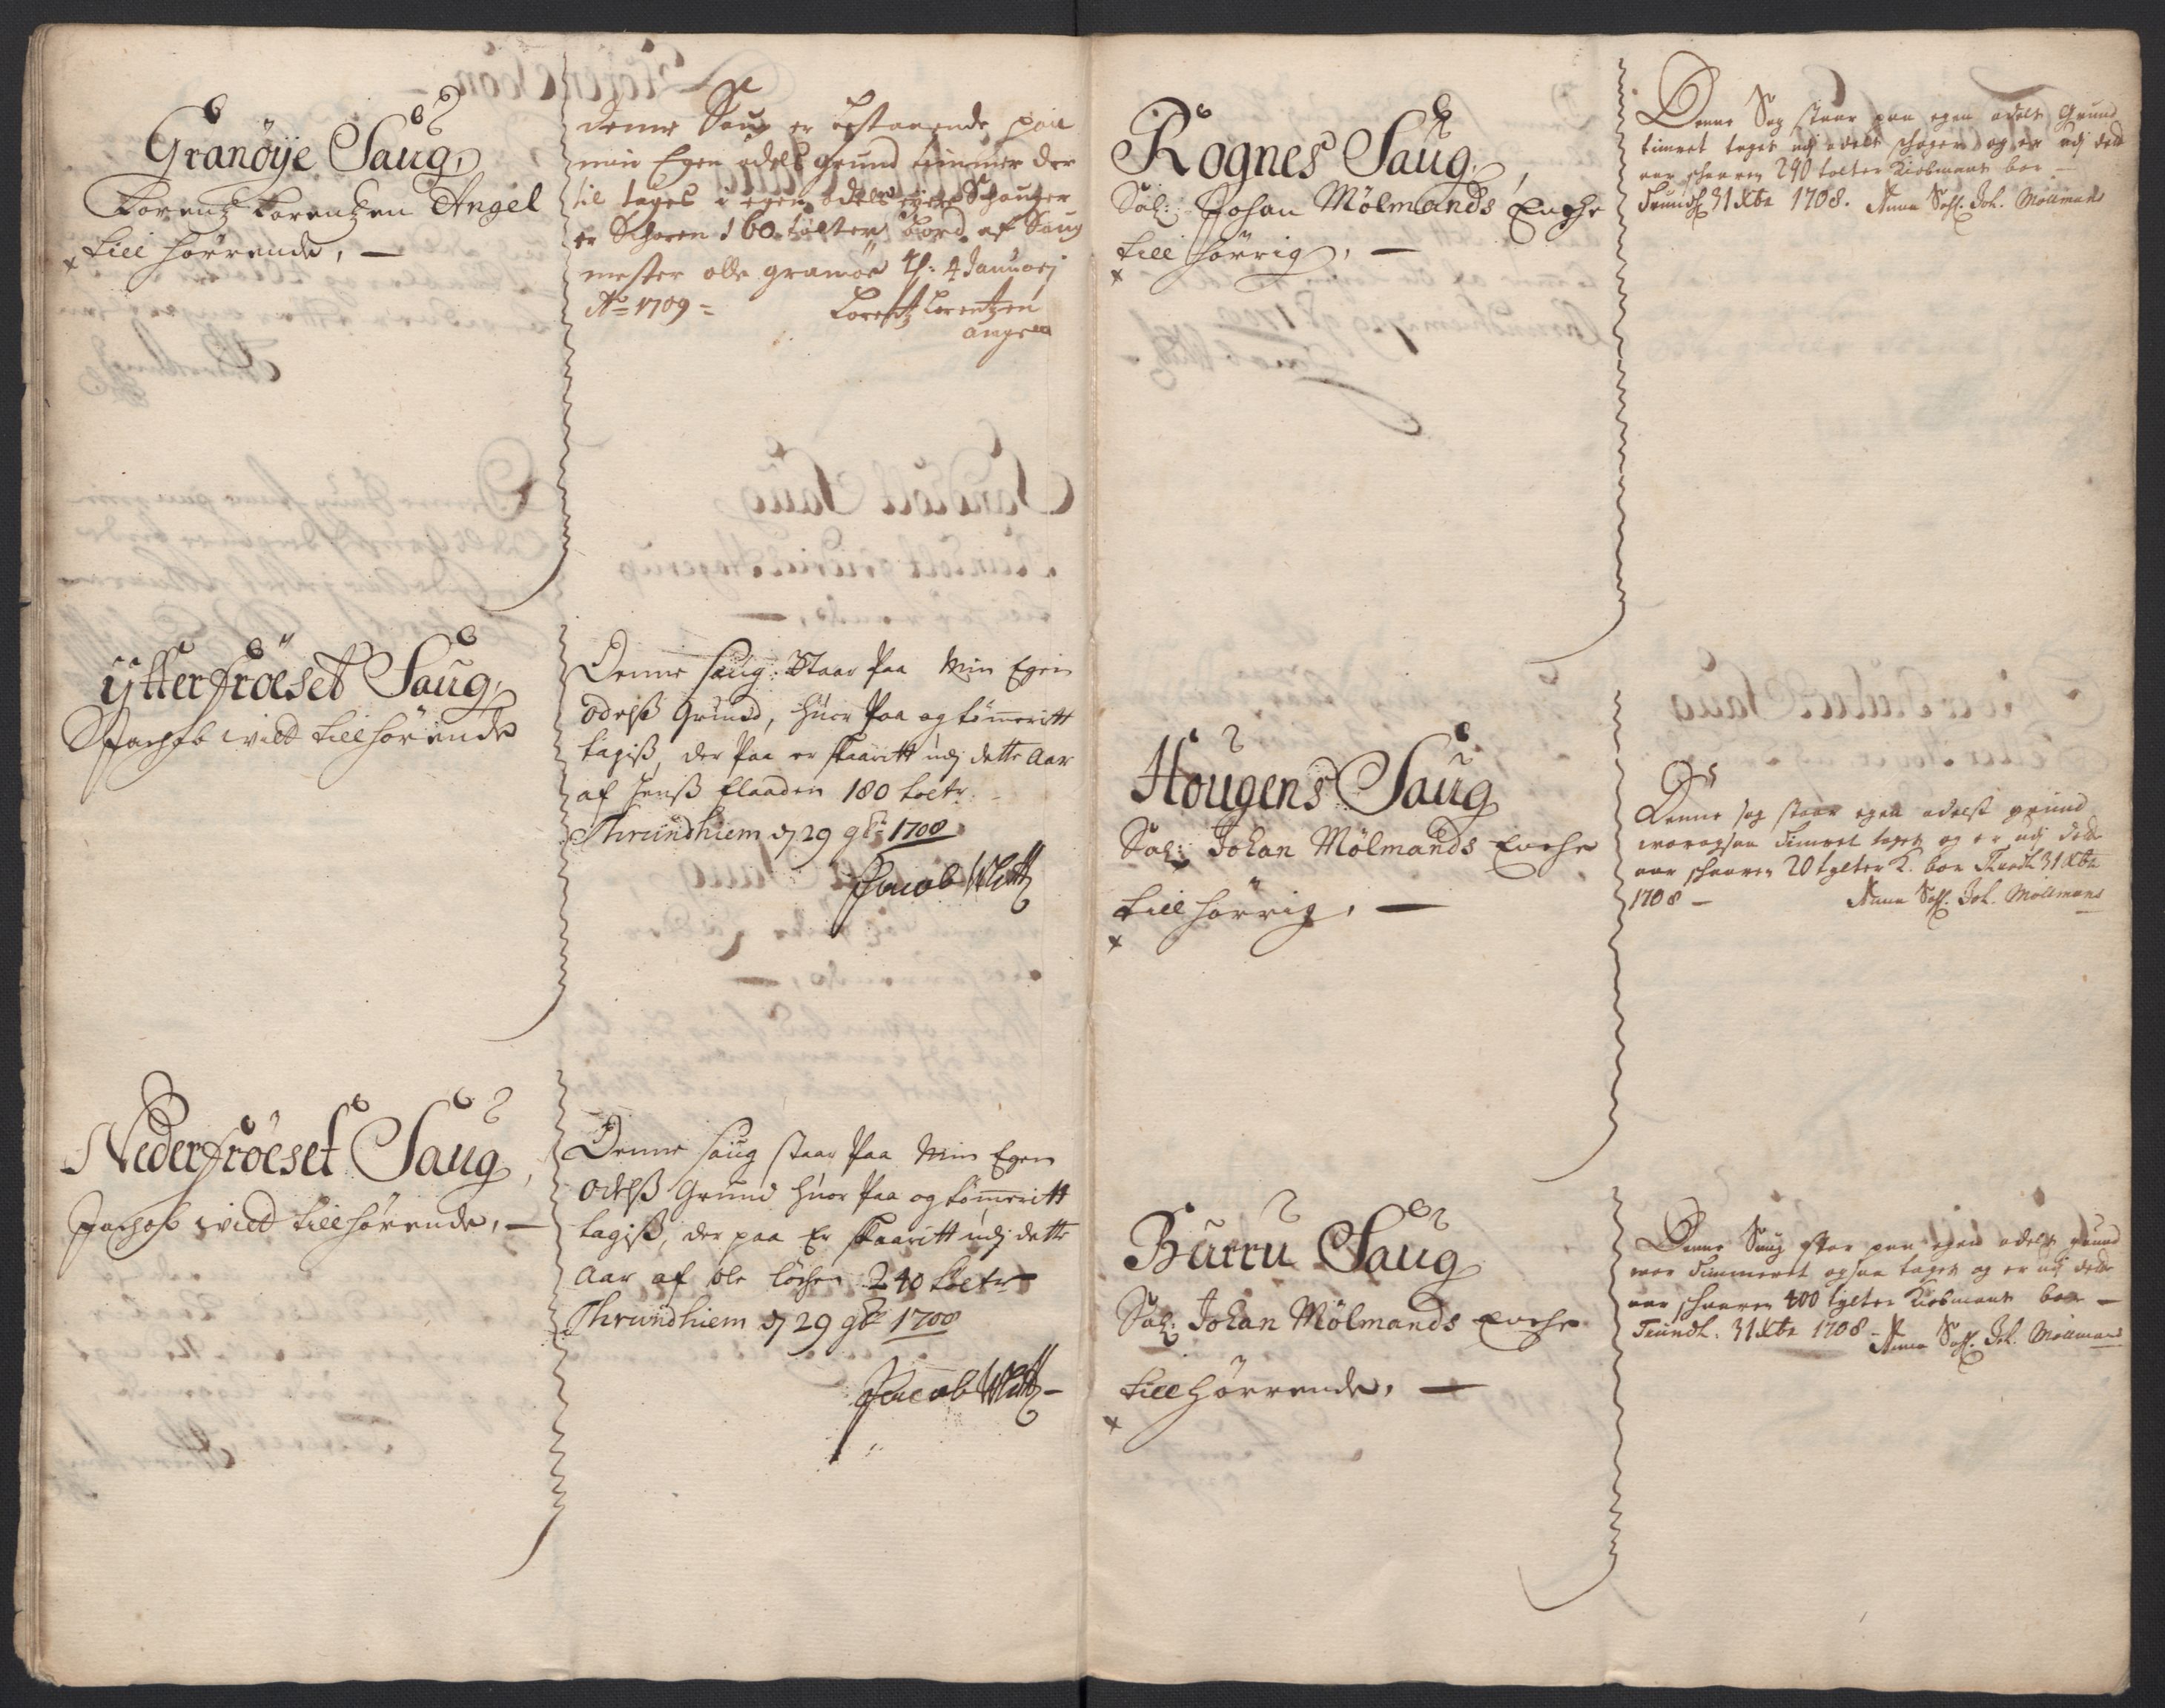 Granöye Saug,
Lorentz Lorentzen Angel
till hörrende, —
denne Saug er bestaaende paa
min Egen odels grund timmer der
til tages i egen odels Schouger
er Schoren 160 tolter bord af Saug
mester olle gramoe 4 Januarj
Ao 1709 =
Lorentz Lorentzen
angell
Ytterfröeset Saug,
Jachob Witt till hörende
Denne saug Staar Paa Min Egen
odelß Grund, huor Paa og tömmeritt
tagiß, der Paa er skaaritt udj dette Aar
af Jenß flaaden 180 toltr
Thrundhiem d 29 9br 1708
Jacob Witt
Nederfröeset Saug,
Jachob Witt till hörende, —
Denne saug staar Paa Min Egen
odelß Grund huor Paa og tömmeritt
tagiß, der paa Er skaaritt udj dette
Aar af ole 240 toltr
Thrundhiem d 29 9br 1708
Jacob Witt —
Rognes Saug,
Sal: Johan Mölmands Enche
till hörrig, —
Denne Sag staar paa egen odels Grund
timret tages udj odels schoger og er udj dette
aar schaaren 240 tolter Kiobmants bor —
Trundh 31 Xbr 1708. Anna Sahl. Joh. Mollmans
Hougens Saug
Sal: Johan Mölmands Enche
till hörrig, —
Denne sag staar egen odelst grund
worpaa timret tages og er udj dette
aar schaaren 20 tylter K. bor Trundh 31 Xbr
1708 — Anna Sahl. Joh. Mollmans
Burru Saug
Sal: Johan Mölmands Enche
till hörrende, —
Denne Saug staar paa egen odels grund
wor timmeret ogsaa tages og er udj dette
aar schaaren 400 tylter Kiobmants bor —
Trundh. 31 Xbr 1708 — Anna Sahl. Joh. Mollmans